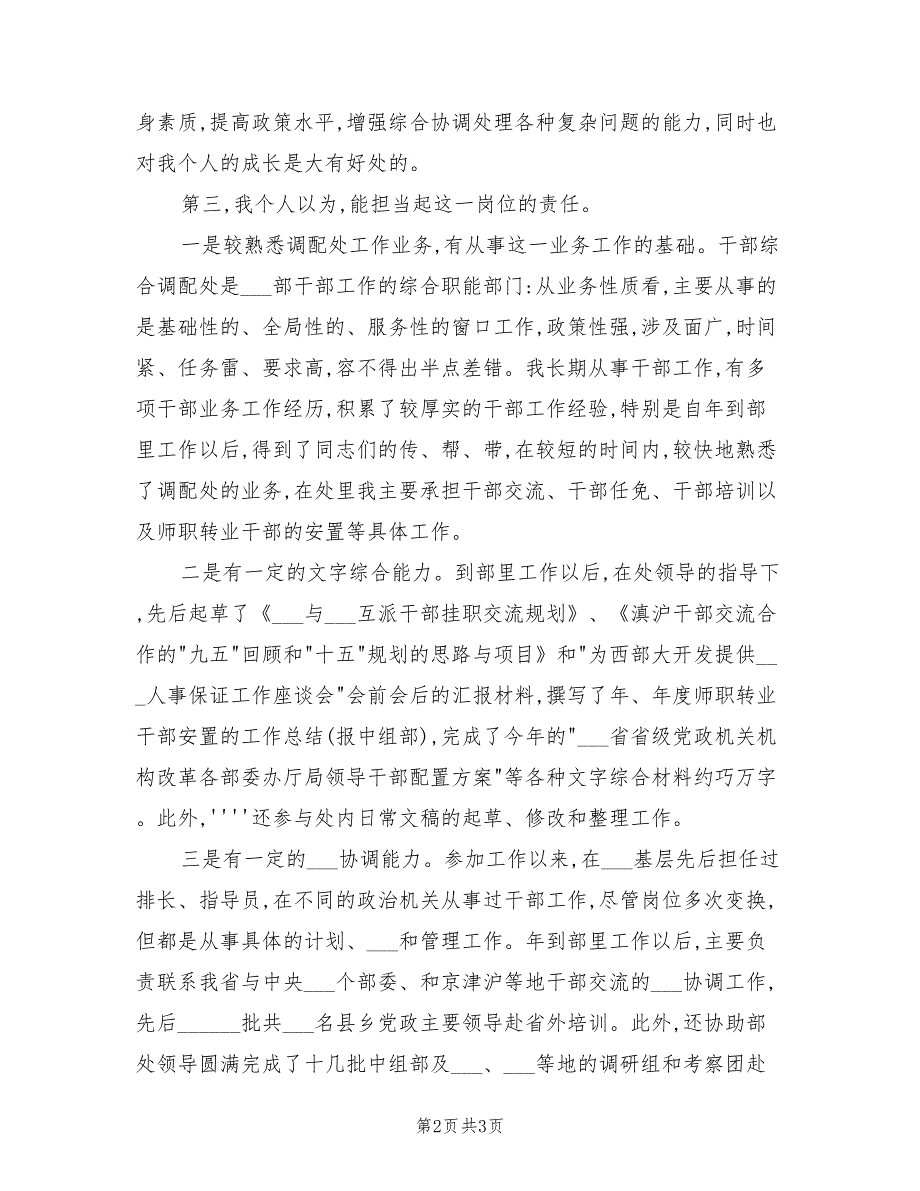 身素质,提高政策水平,增强综合协调处理各种复杂问题的能力,同时也
对我个人的成长是大有好处的。
第三,我个人以为,能担当起这一岗位的责任。
一是较熟悉调配处工作业务,有从事这一业务工作的基础。干部综
合调配处是___部干部工作的综合职能部门:从业务性质看,主要从事的
是基础性的、全局性的、服务性的窗口工作,政策性强,涉及面广,时间
紧、任务雷、要求高,容不得出半点差错。我长期从事干部工作,有多
项干部业务工作经历,积累了较厚实的干部工作经验,特别是自年到部
里工作以后,得到了同志们的传、帮、带,在较短的时间内,较快地熟悉
了调配处的业务,在处里我主要承担干部交流、干部任免、干部培训以
及师职转业干部的安置等具体工作。
二是有一定的文字综合能力。到部里工作以后,在处领导的指导下
,先后起草了《___与___互派干部挂职交流规划》、《滇沪干部交流合
作的"九五"回顾和"十五"规划的思路与项目》和"为西部大开发提供__
_人事保证工作座谈会"会前会后的汇报材料,撰写了年、年度师职转业
干部安置的工作总结(报中组部),完成了今年的"___省省级党政机关机
构改革各部委办厅局领导干部配置方案"等各种文字综合材料约巧万字
。此外,''''还参与处内日常文稿的起草、修改和整理工作。
三是有一定的___协调能力。参加工作以来,在___基层先后担任过
排长、指导员,在不同的政治机关从事过干部工作,尽管岗位多次变换,
但都是从事具体的计划、___和管理工作。年到部里工作以后,主要负
责联系我省与中央___个部委、和京津沪等地干部交流的___协调工作,
先后______批共___名县乡党政主要领导赴省外培训。此外,还协助部
处领导圆满完成了十几批中组部及___、___等地的调研组和考察团赴
第2页共3页